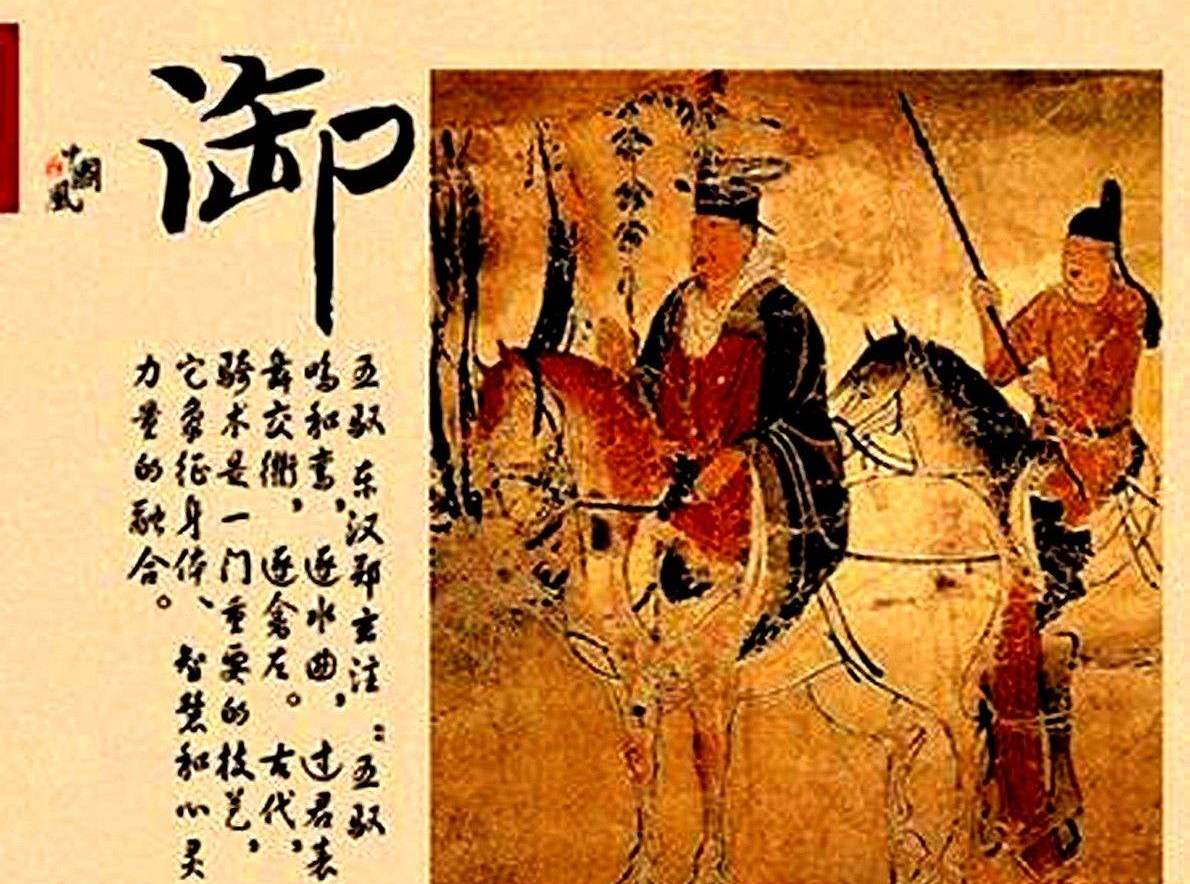 御
五驭 东汉郑玄注：五驭
鸣和鸾，逐水曲，过君表
舞交衢，逐禽左。古代，
骑术是一门重要的技艺，
它象征身体、智慧和心灵
力量的融合。